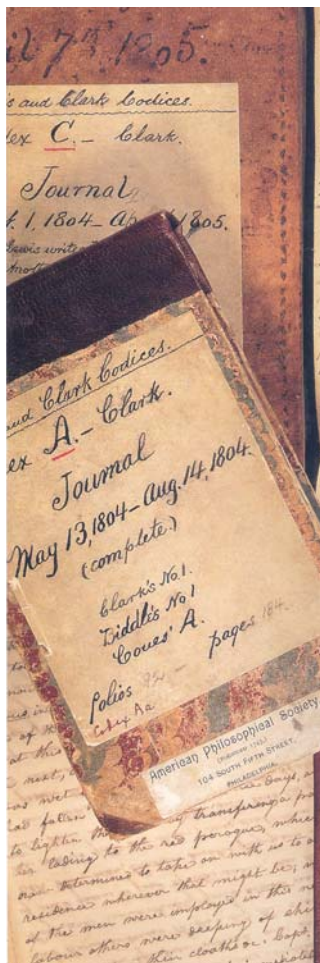 il 7th 1805.
s and Clark Codices.
ex C. - Clark.
Journal
1, 1804 - Ap 1805.
Lewis write
Anoth
and Clark Codices.
ex A. - Clark.
Journal
May 13, 1804 - Aug. 14, 1804.
(complete)
Clark's No 1.
Biddle's No 1
Coues' A.
Folios pages 184
Codex Aa
American Philosophical Society
104 SOUTH FIFTH STREET,
PHILADELPHIA.
of th
at this
neat,
was wet days, a
had fallen
to lighten the by transfering a p
her lading to the red perogue, which
now determined to take on with us to o
residence wherever that might be; w
of the men were imployed in this ne
labour others were
their cloathes. Caps,